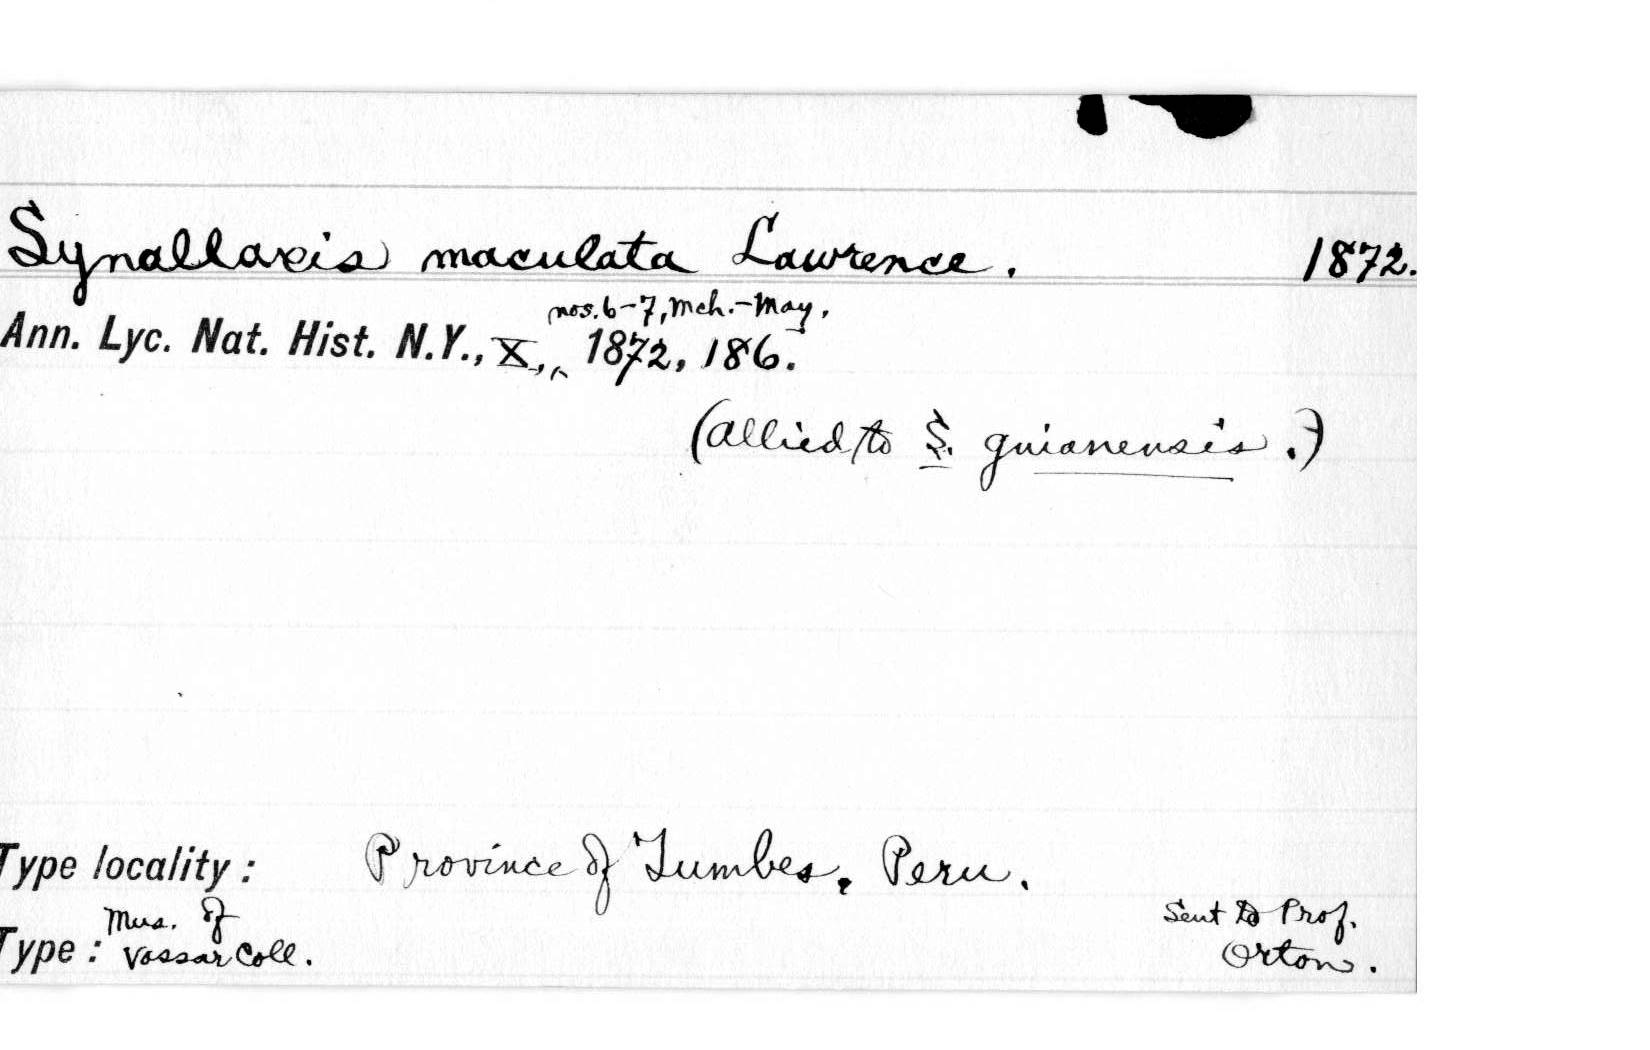 Synallaxis maculata Lawrence. 1872.
nos. 6-7, Mch.-May,
Ann. Lyc. Nat. Hist. N.Y., X., 1872, 186.
(allied to S. guianensis.)
Type locality: Province of Tumbes, Peru.
Mus. of
Type: Vassar Coll.
Sent to Prof.
Orton.